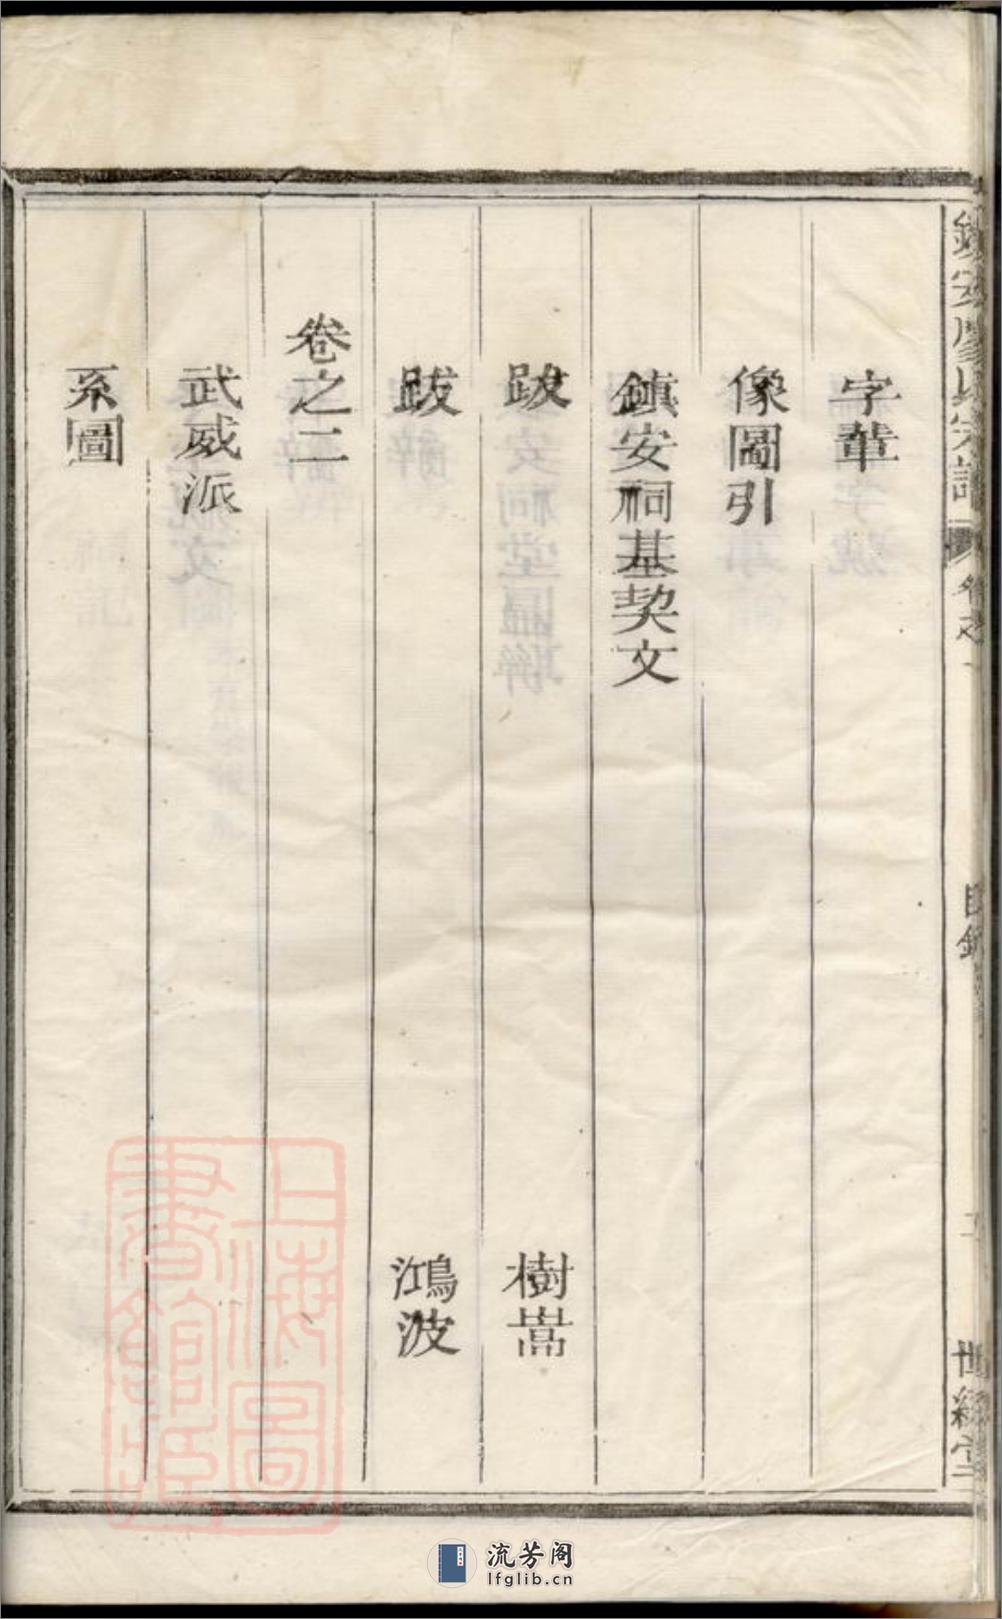 字輩
像圖引
鎮安祠基契文
跋 樹嵩
跋 鴻波
卷之二
武威派
系圖
鎮安廖氏宗譜 卷之一 目錄 世綵堂
上海圖書館藏
流芳阁
lfglib.cn